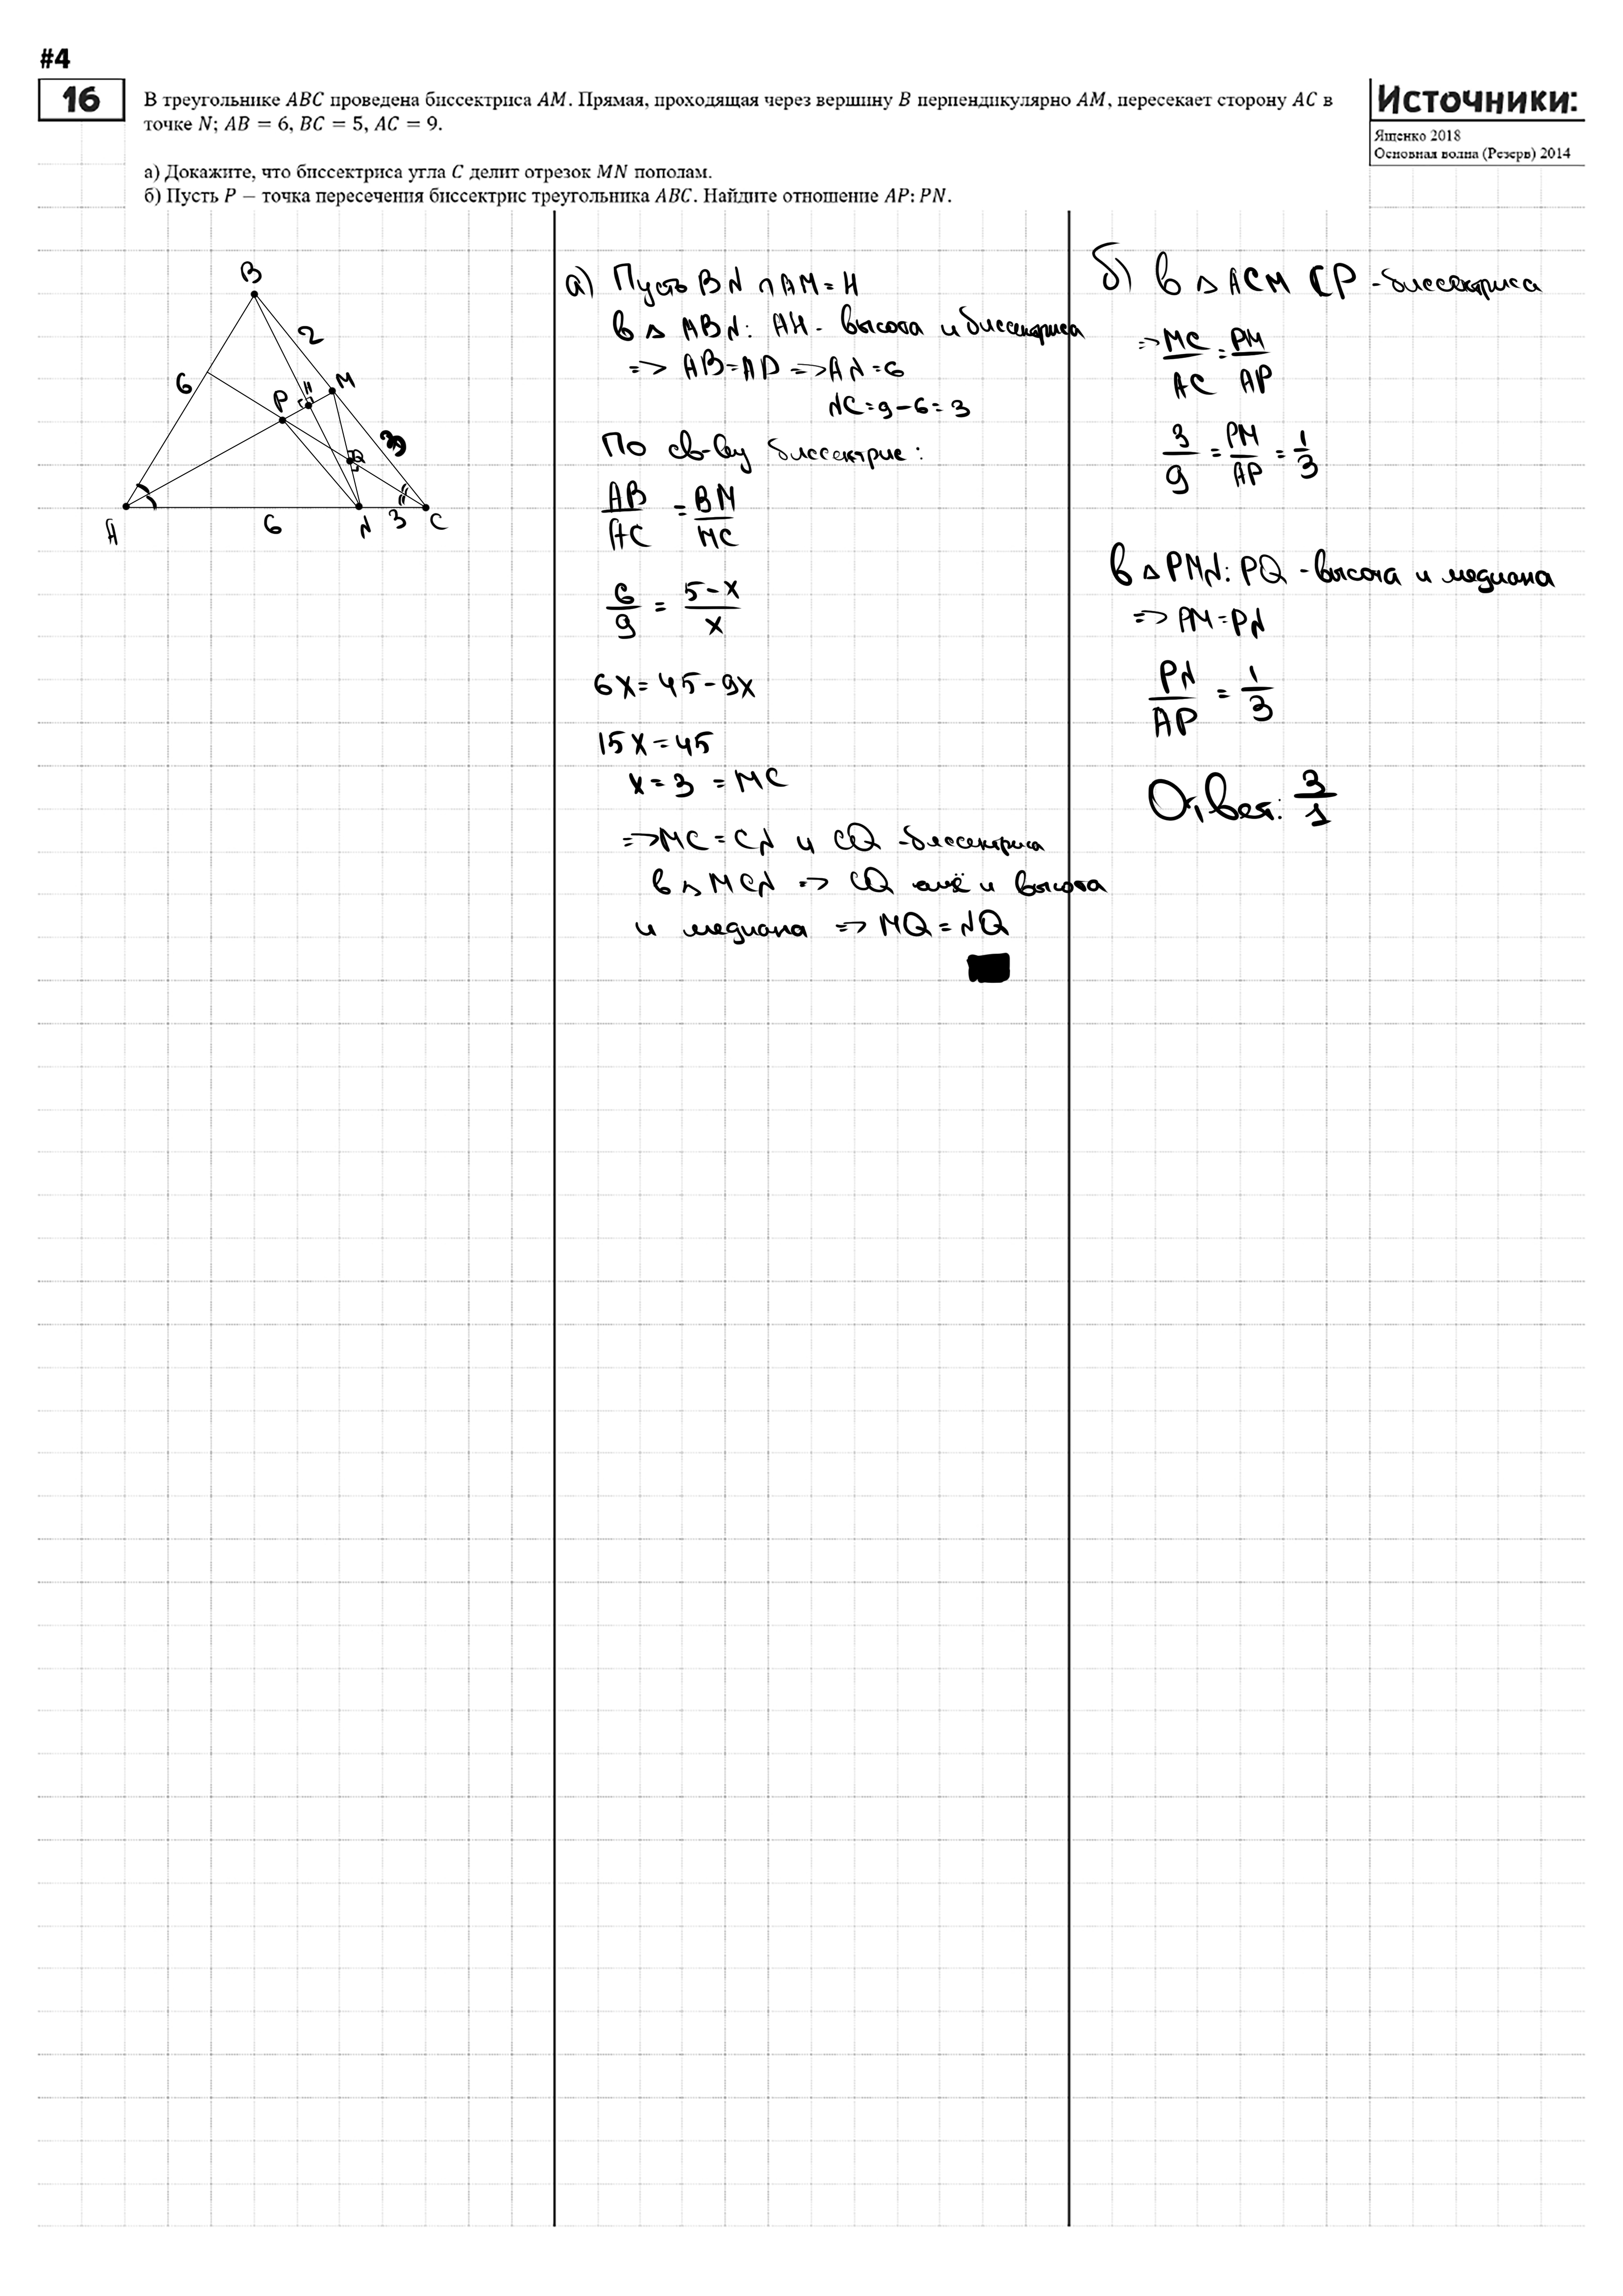 #4
16
В треугольнике ABC проведена биссектриса AM. Прямая, проходящая через вершину B перпендикулярно AM, пересекает сторону AC в
точке N; AB = 6, BC = 5, AC = 9.
а) Докажите, что биссектриса угла C делит отрезок MN пополам.
б) Пусть P – точка пересечения биссектрис треугольника ABC. Найдите отношение AP: PN.
Источники:
Ященко 2018
Основная волна (Резерв) 2014
B
2
6
M
P
H
3
Q
A
6
N
3
C
а) Пусть BN ∩ AM = H
в △ ABN: AH - высота и биссектриса
=> AB=AD => AN=6
NC=9-6=3
По св-ву биссектрис:
AB/AC = BM/MC
6/9 = (5-x)/x
6x=45-9x
15x=45
x=3 =MC
=> MC=CN и CQ -биссектриса
в △ MCN => CQ ещё и высота
и медиана => MQ=NQ
б) в △ ACM CP -биссектриса
=> MC/AC = PM/AP
3/9 = PM/AP = 1/3
в △ PMN: PQ -высота и медиана
=> PM=PN
PN/AP = 1/3
Ответ: 3/1